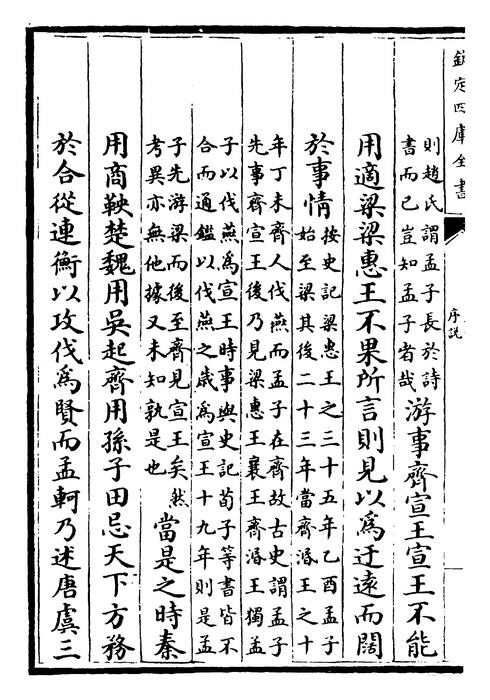 欽定四庫全書
序説
則趙氏謂孟子長於詩
書而已豈知孟子者哉
游事齊宣王宣王不能
用適梁梁惠王不果所言則見以為迂遠而闊
於事情
按史記梁惠王之三十五年乙酉孟子
始至梁其後二十三年當齊湣王之十
年丁未齊人伐燕而孟子在齊故古史謂孟子
先事齊宣王後乃見梁惠王襄王齊湣王獨孟
子以伐燕為宣王時事與史記荀子等書皆不
合而通鑑以伐燕之歳為宣王十九年則是孟
子先游梁而後至齊見宣王矣然
考異亦無他據又未知孰是也
當是之時秦
用商鞅楚魏用吳起齊用孫子田忌天下方務
於合從連衡以攻伐為賢而孟軻乃述唐虞三